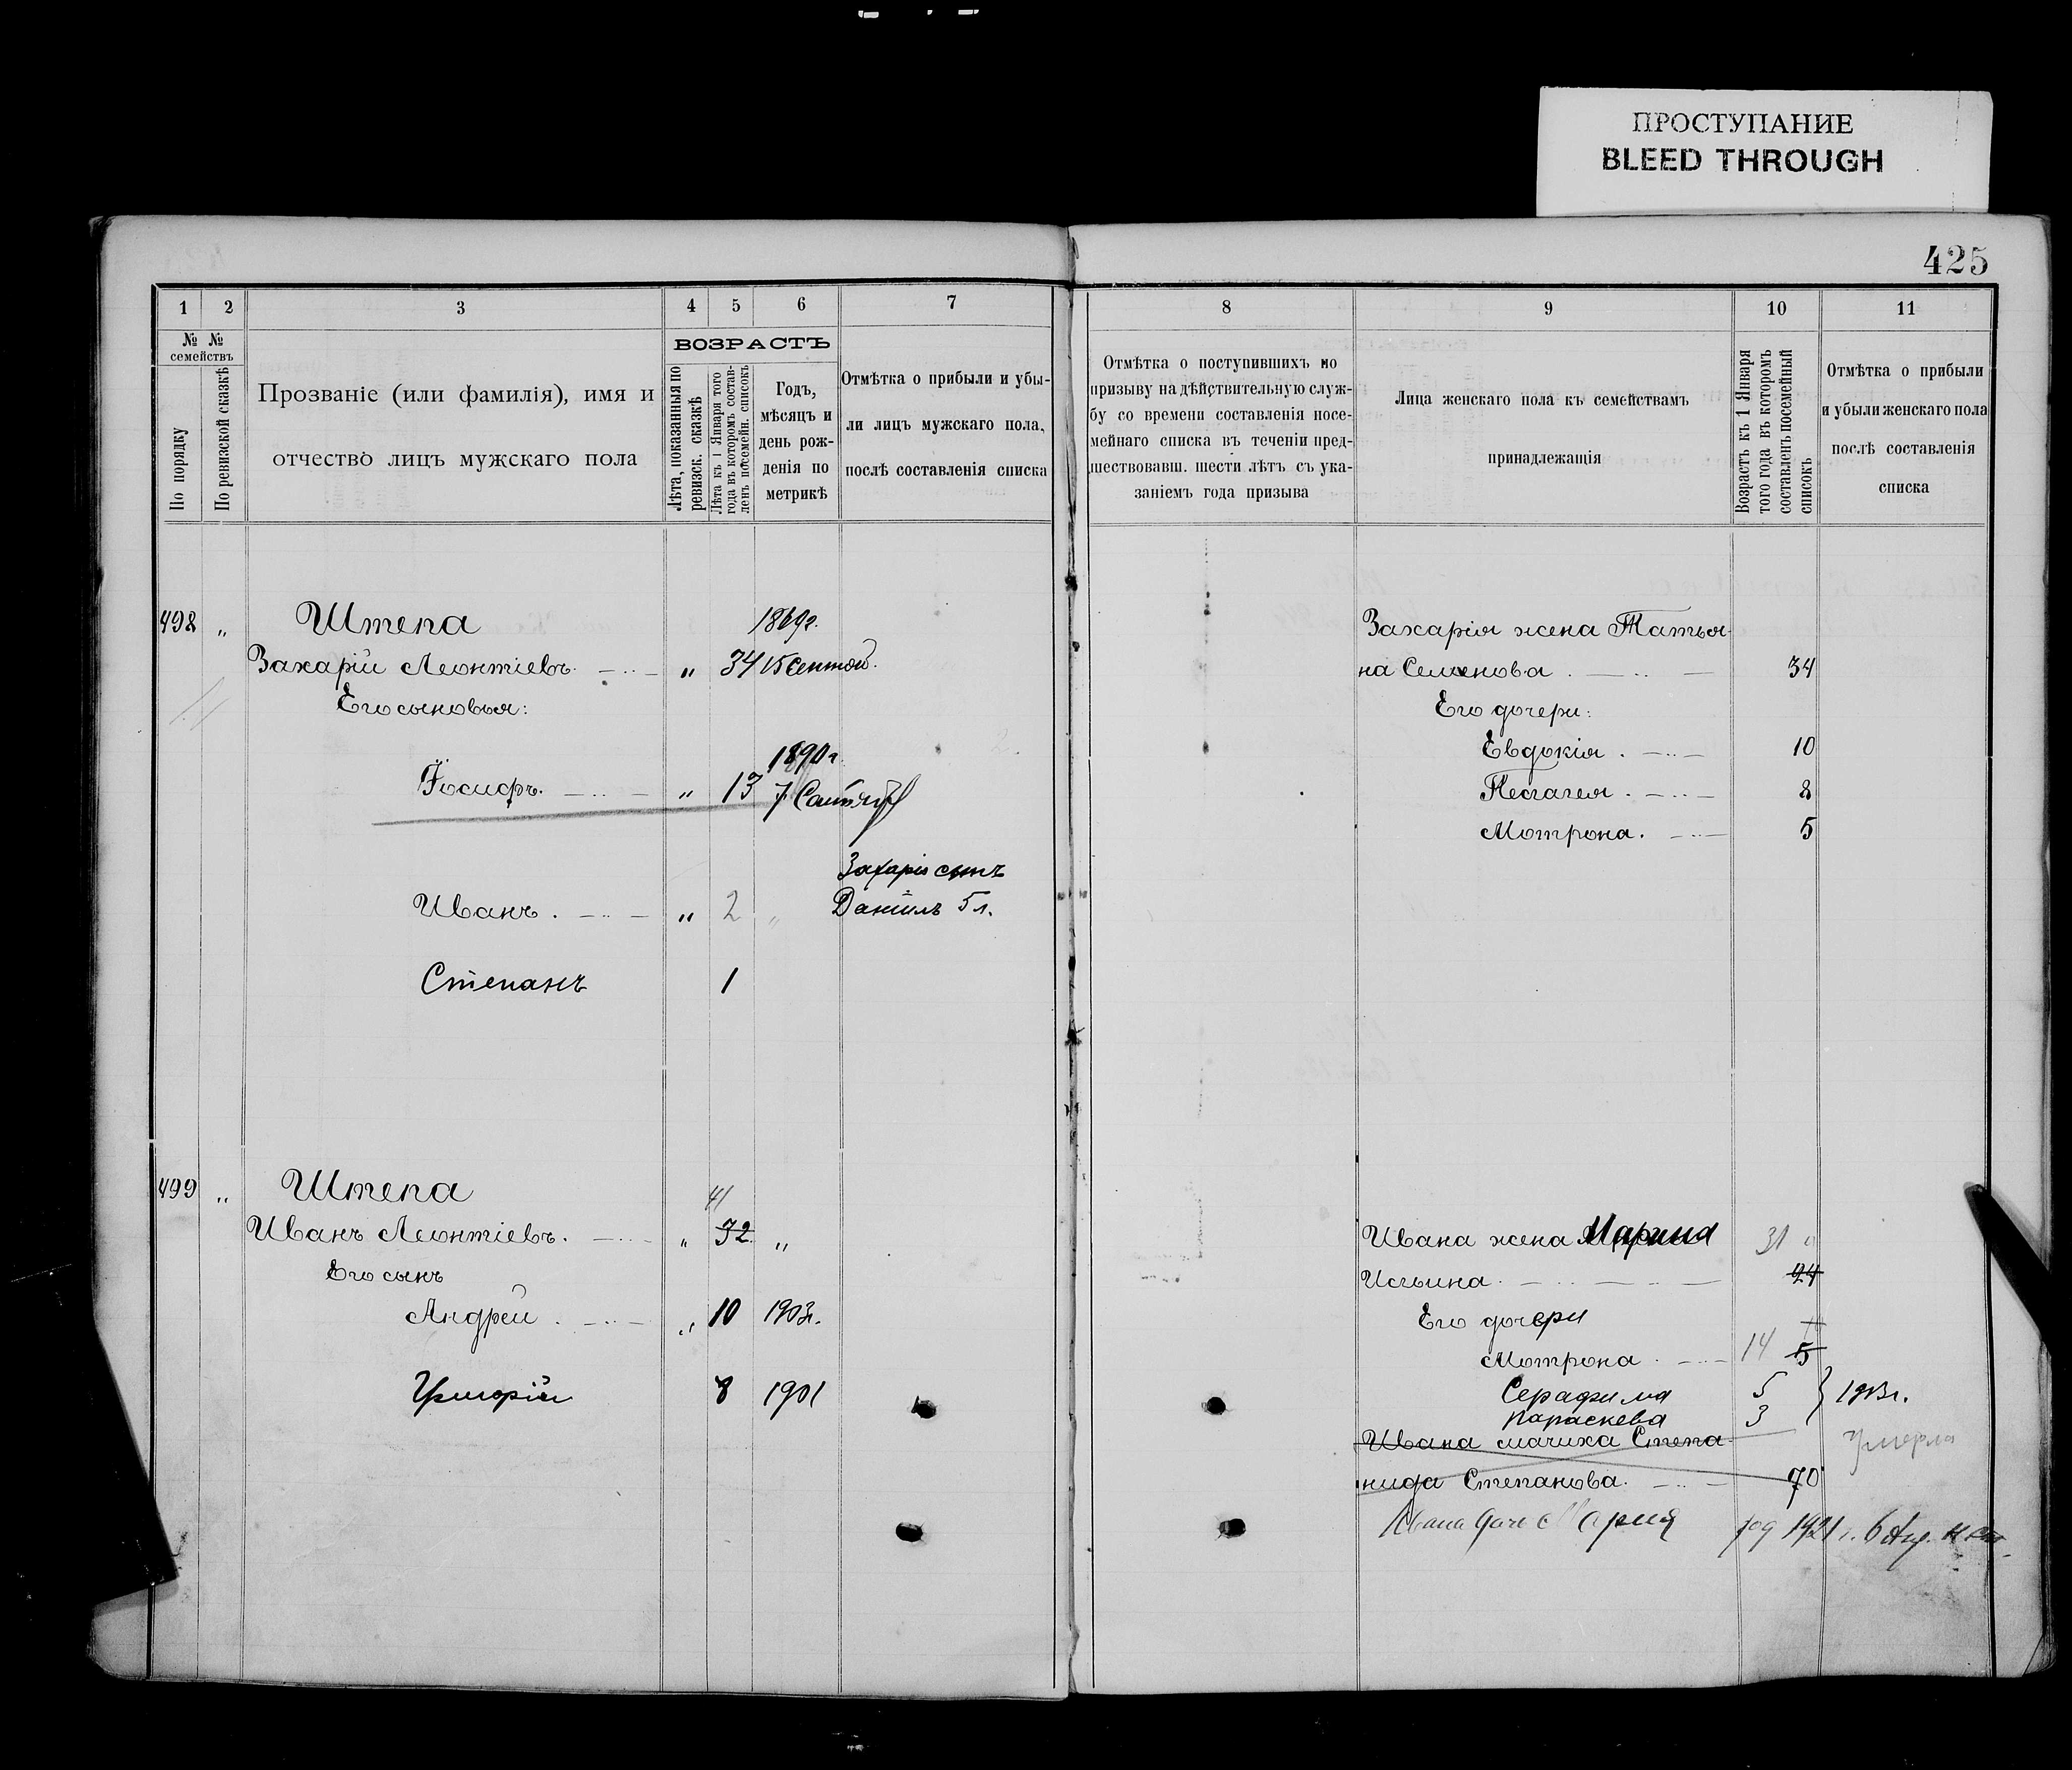 ПРОСТУПАНИЕ
BLEED THROUGH
425
1 2 3 4 5 6 7
№ № семействъ
По порядку
По ревизской сказкѣ
Прозваніе (или фамилія), имя и
отчество лицъ мужскаго пола
ВОЗРАСТЪ
Лѣта, показанныя по
ревизск. сказкѣ
Лѣта къ 1 Января того
года въ которомъ состав-
ленъ посемейн. списокъ
Годъ,
мѣсяцъ и
день рож-
денія по
метрикѣ
Отмѣтка о прибыли и убы-
ли лицъ мужскаго пола,
послѣ составленія списка
498 „ Штепа 1869г.
Захарій Леонтіевъ. „ 34 15 сентяб.
Его сыновья:
1890г.
Іосифъ. „ 13 7
Захарія сынъ
Иванъ. „ 2 „ Даніилъ 5 л.
Степанъ 1
499 „ Штепа 41
Иванъ Леонтіевъ. „ 32 „
Его сынъ
Андрей. „ 10 1903г.
8 1901
8 9 10 11
Отмѣтка о поступившихъ по
призыву на дѣйствительную служ-
бу со времени составленія посе-
мейнаго списка въ теченіи пред-
шествовавш. шести лѣтъ съ ука-
заніемъ года призыва
Лица женскаго пола къ семействамъ
принадлежащія
Возрастъ къ 1 Января
того года въ которомъ
составленъ посемейный
списокъ
Отмѣтка о прибыли
и убыли женскаго пола
послѣ составленія
списка
Захарія жена Татья-
на Семенова. 34
Его дочери:
Евдокія. 10
Пелагея. 8
Мотрона. 5
Ивана жена Марина 31 „
Ильина. 24
Его дочери
Мотрона. 14 5
Серафима 5 } 1913г.
Параскева 3
Ивана мачиха Степа- умерла
нида Степанова. 70
Ивана дочь Мария род 1921 г. 6